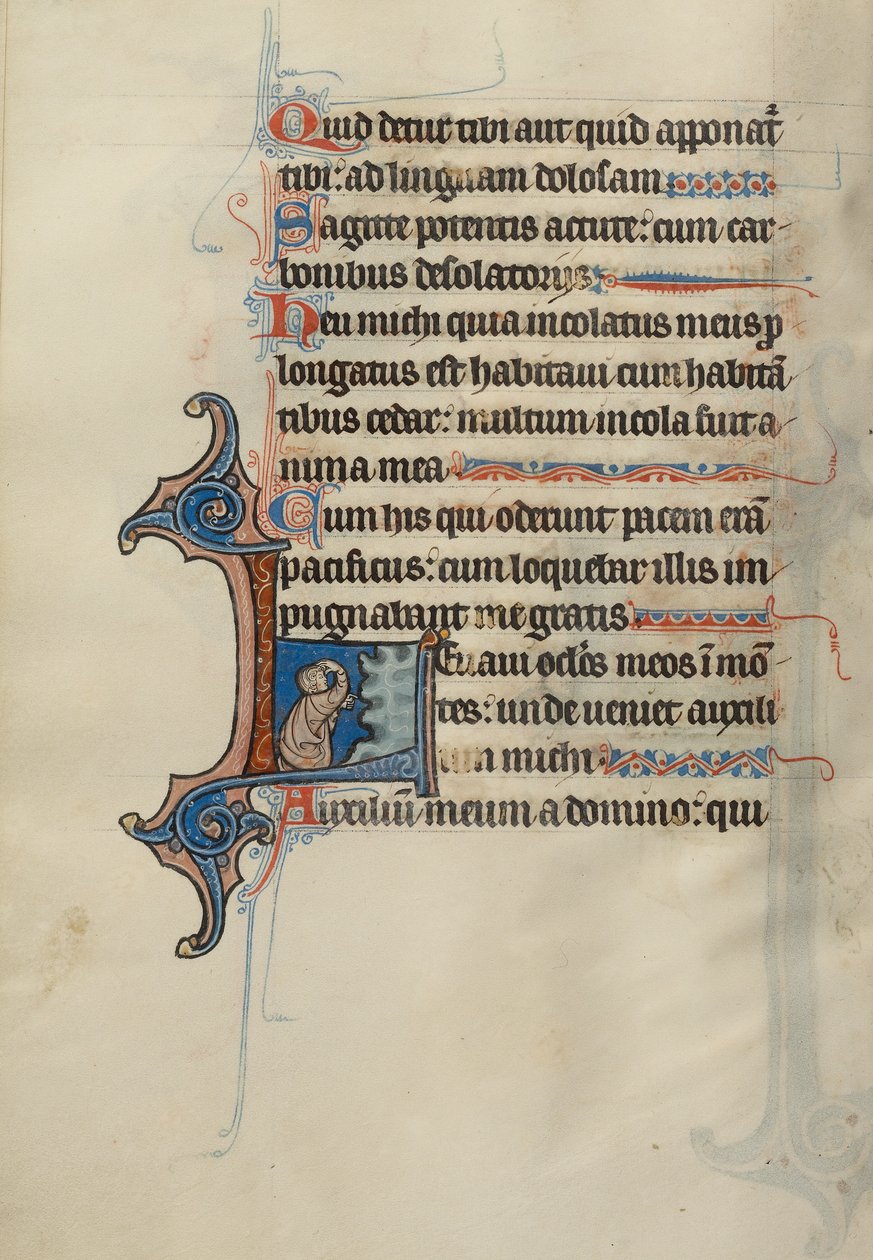 Quid detur tibi aut quid apponat᷑
tibi: ad linguam dolosam
Sagitte potentis accute: cum car-
bonibus desolatorijs
Heu michi quia incolatus meus ꝓ
longatus est habitaui cum habitã
tibus cedar: multum incola fuit a-
nima mea
Cum his qui oderunt pacem erã
pacificus: cum loquebar illis im-
pugnabant me gratis
Leuaui oclo̕s meos ĩ mõ-
tes: unde ueniet auxili
um michi
Auxiliũ meum a domino: qui